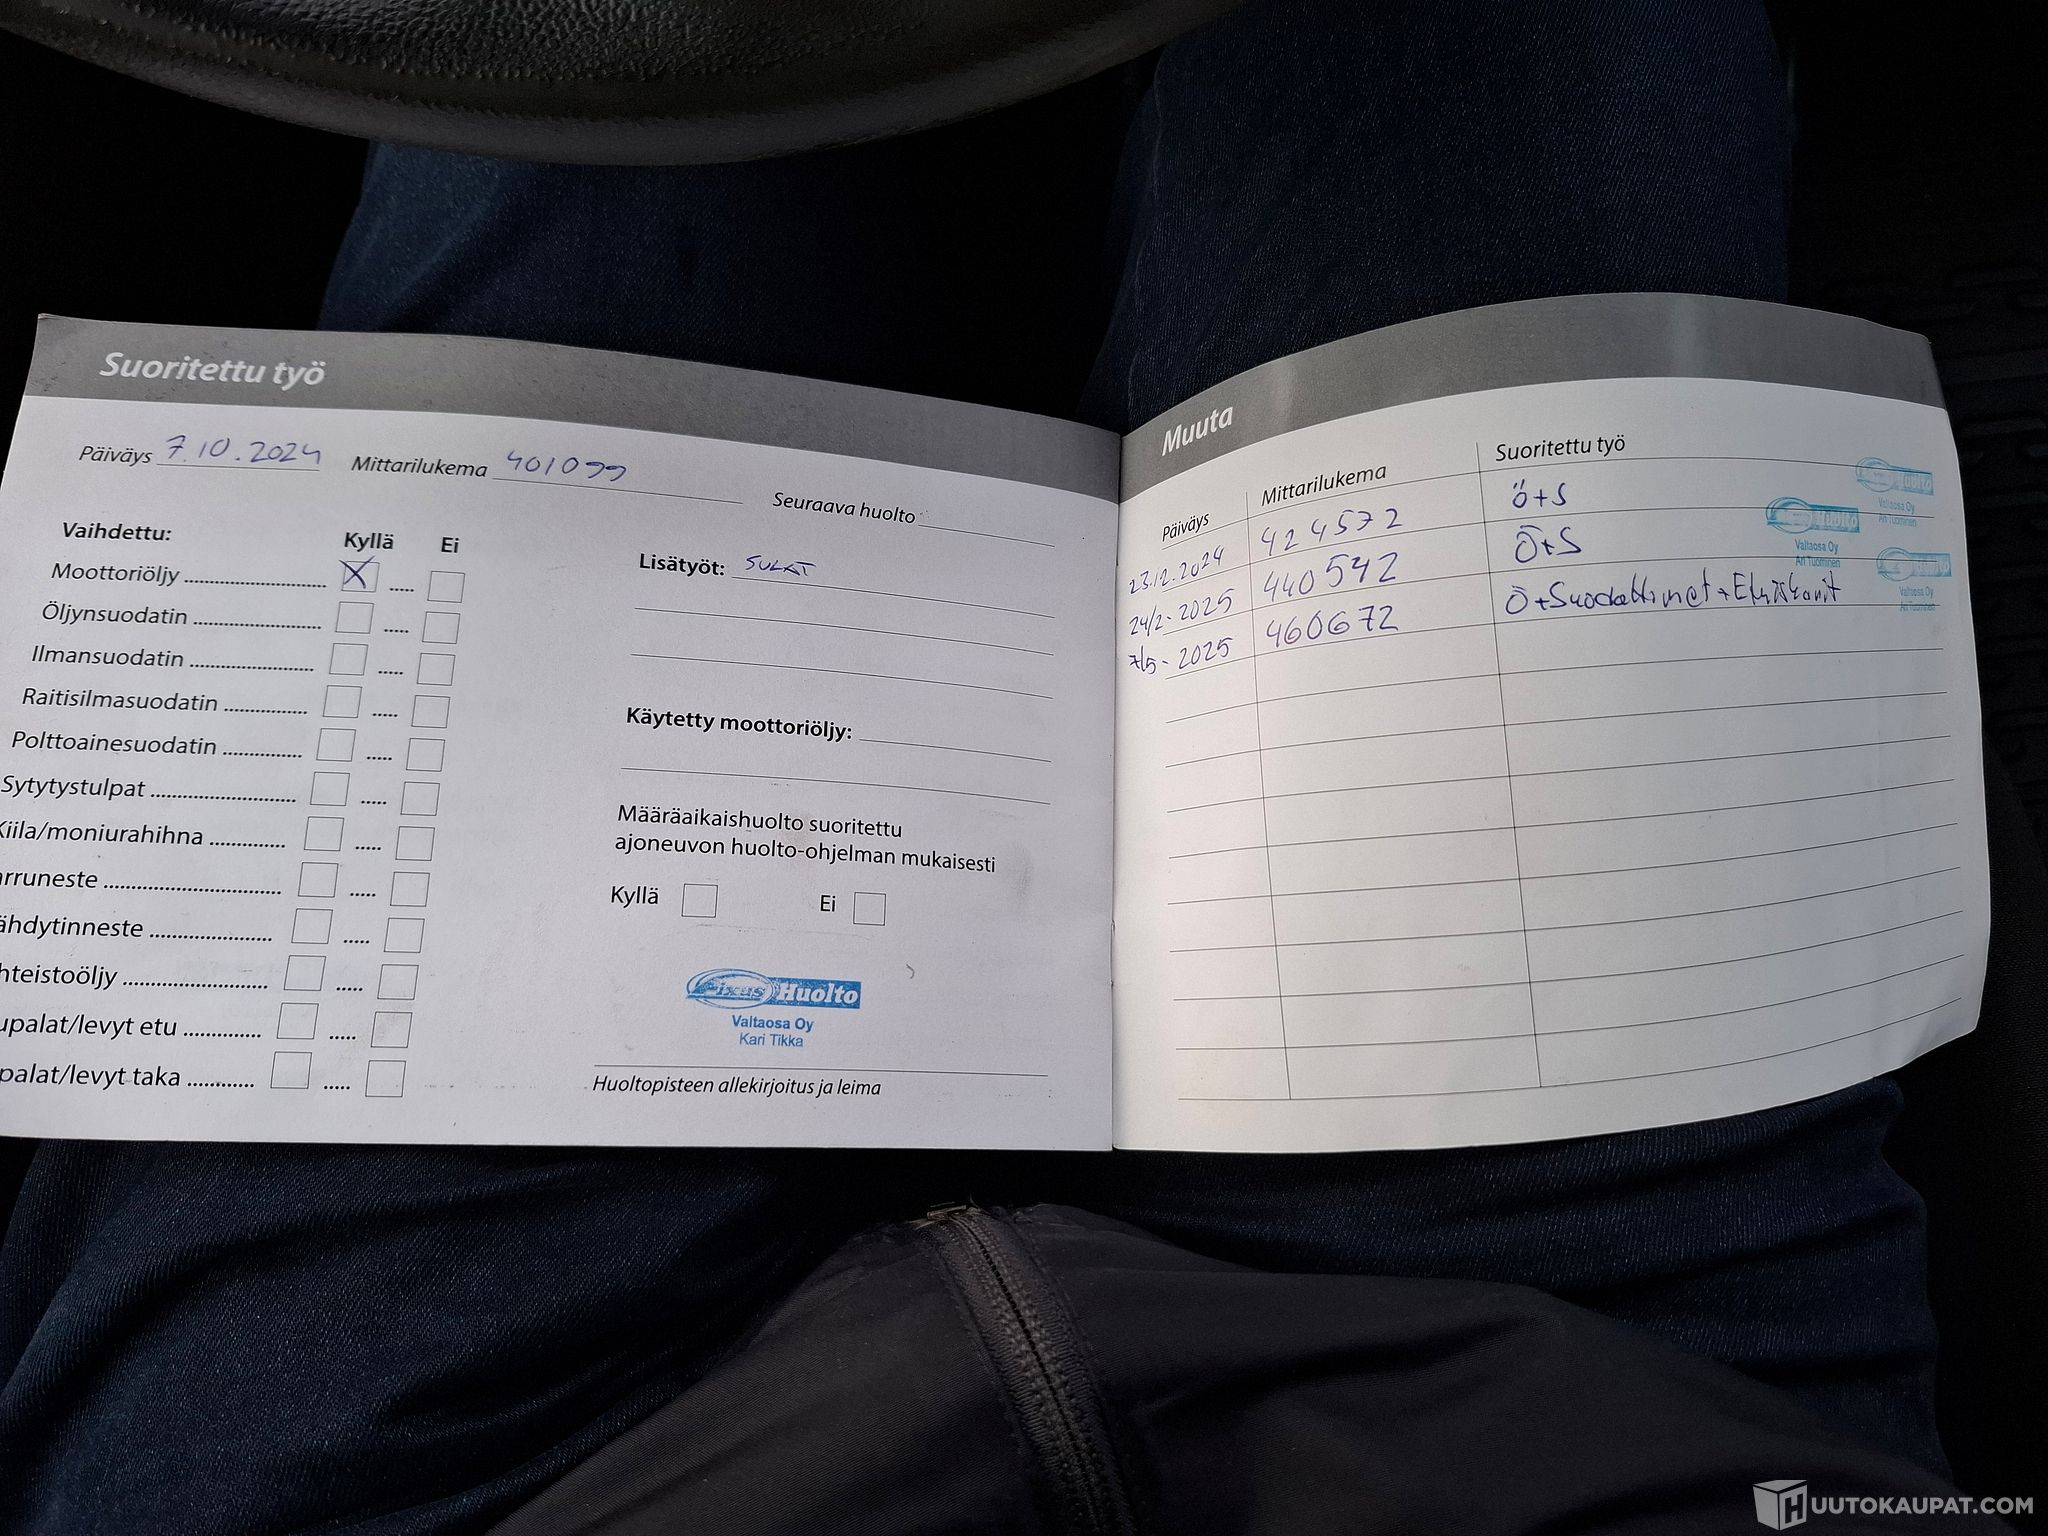 Suoritettu työ
Päiväys 7.10.2024 Mittarilukema 401099
Seuraava huolto
Vaihdettu: Kyllä Ei
Moottoriöljy X
Öljynsuodatin
Ilmansuodatin
Raitisilmasuodatin
Polttoainesuodatin
Sytytystulpat
Kiila/moniurahihna
rruneste
ähdytinneste
hteistoöljy
upalat/levyt etu
palat/levyt taka
Lisätyöt: SULAT
Käytetty moottoriöljy:
Määräaikaishuolto suoritettu
ajoneuvon huolto-ohjelman mukaisesti
Kyllä Ei
Fixus Huolto
Valtaosa Oy
Kari Tikka
Huoltopisteen allekirjoitus ja leima
Muuta
Päiväys Mittarilukema Suoritettu työ
23.12.2024 424572 Ö+S
24/2-2025 440542 Ö+S
7/5-2025 460672 Ö+Suodattimet+Etuiskarit
Huolto
Valtaosa Oy
Ari Tuominen
Fixus Huolto
Valtaosa Oy
Ari Tuominen
Huolto
Valtaosa Oy
Ari Tuominen
HUUTOKAUPAT.COM